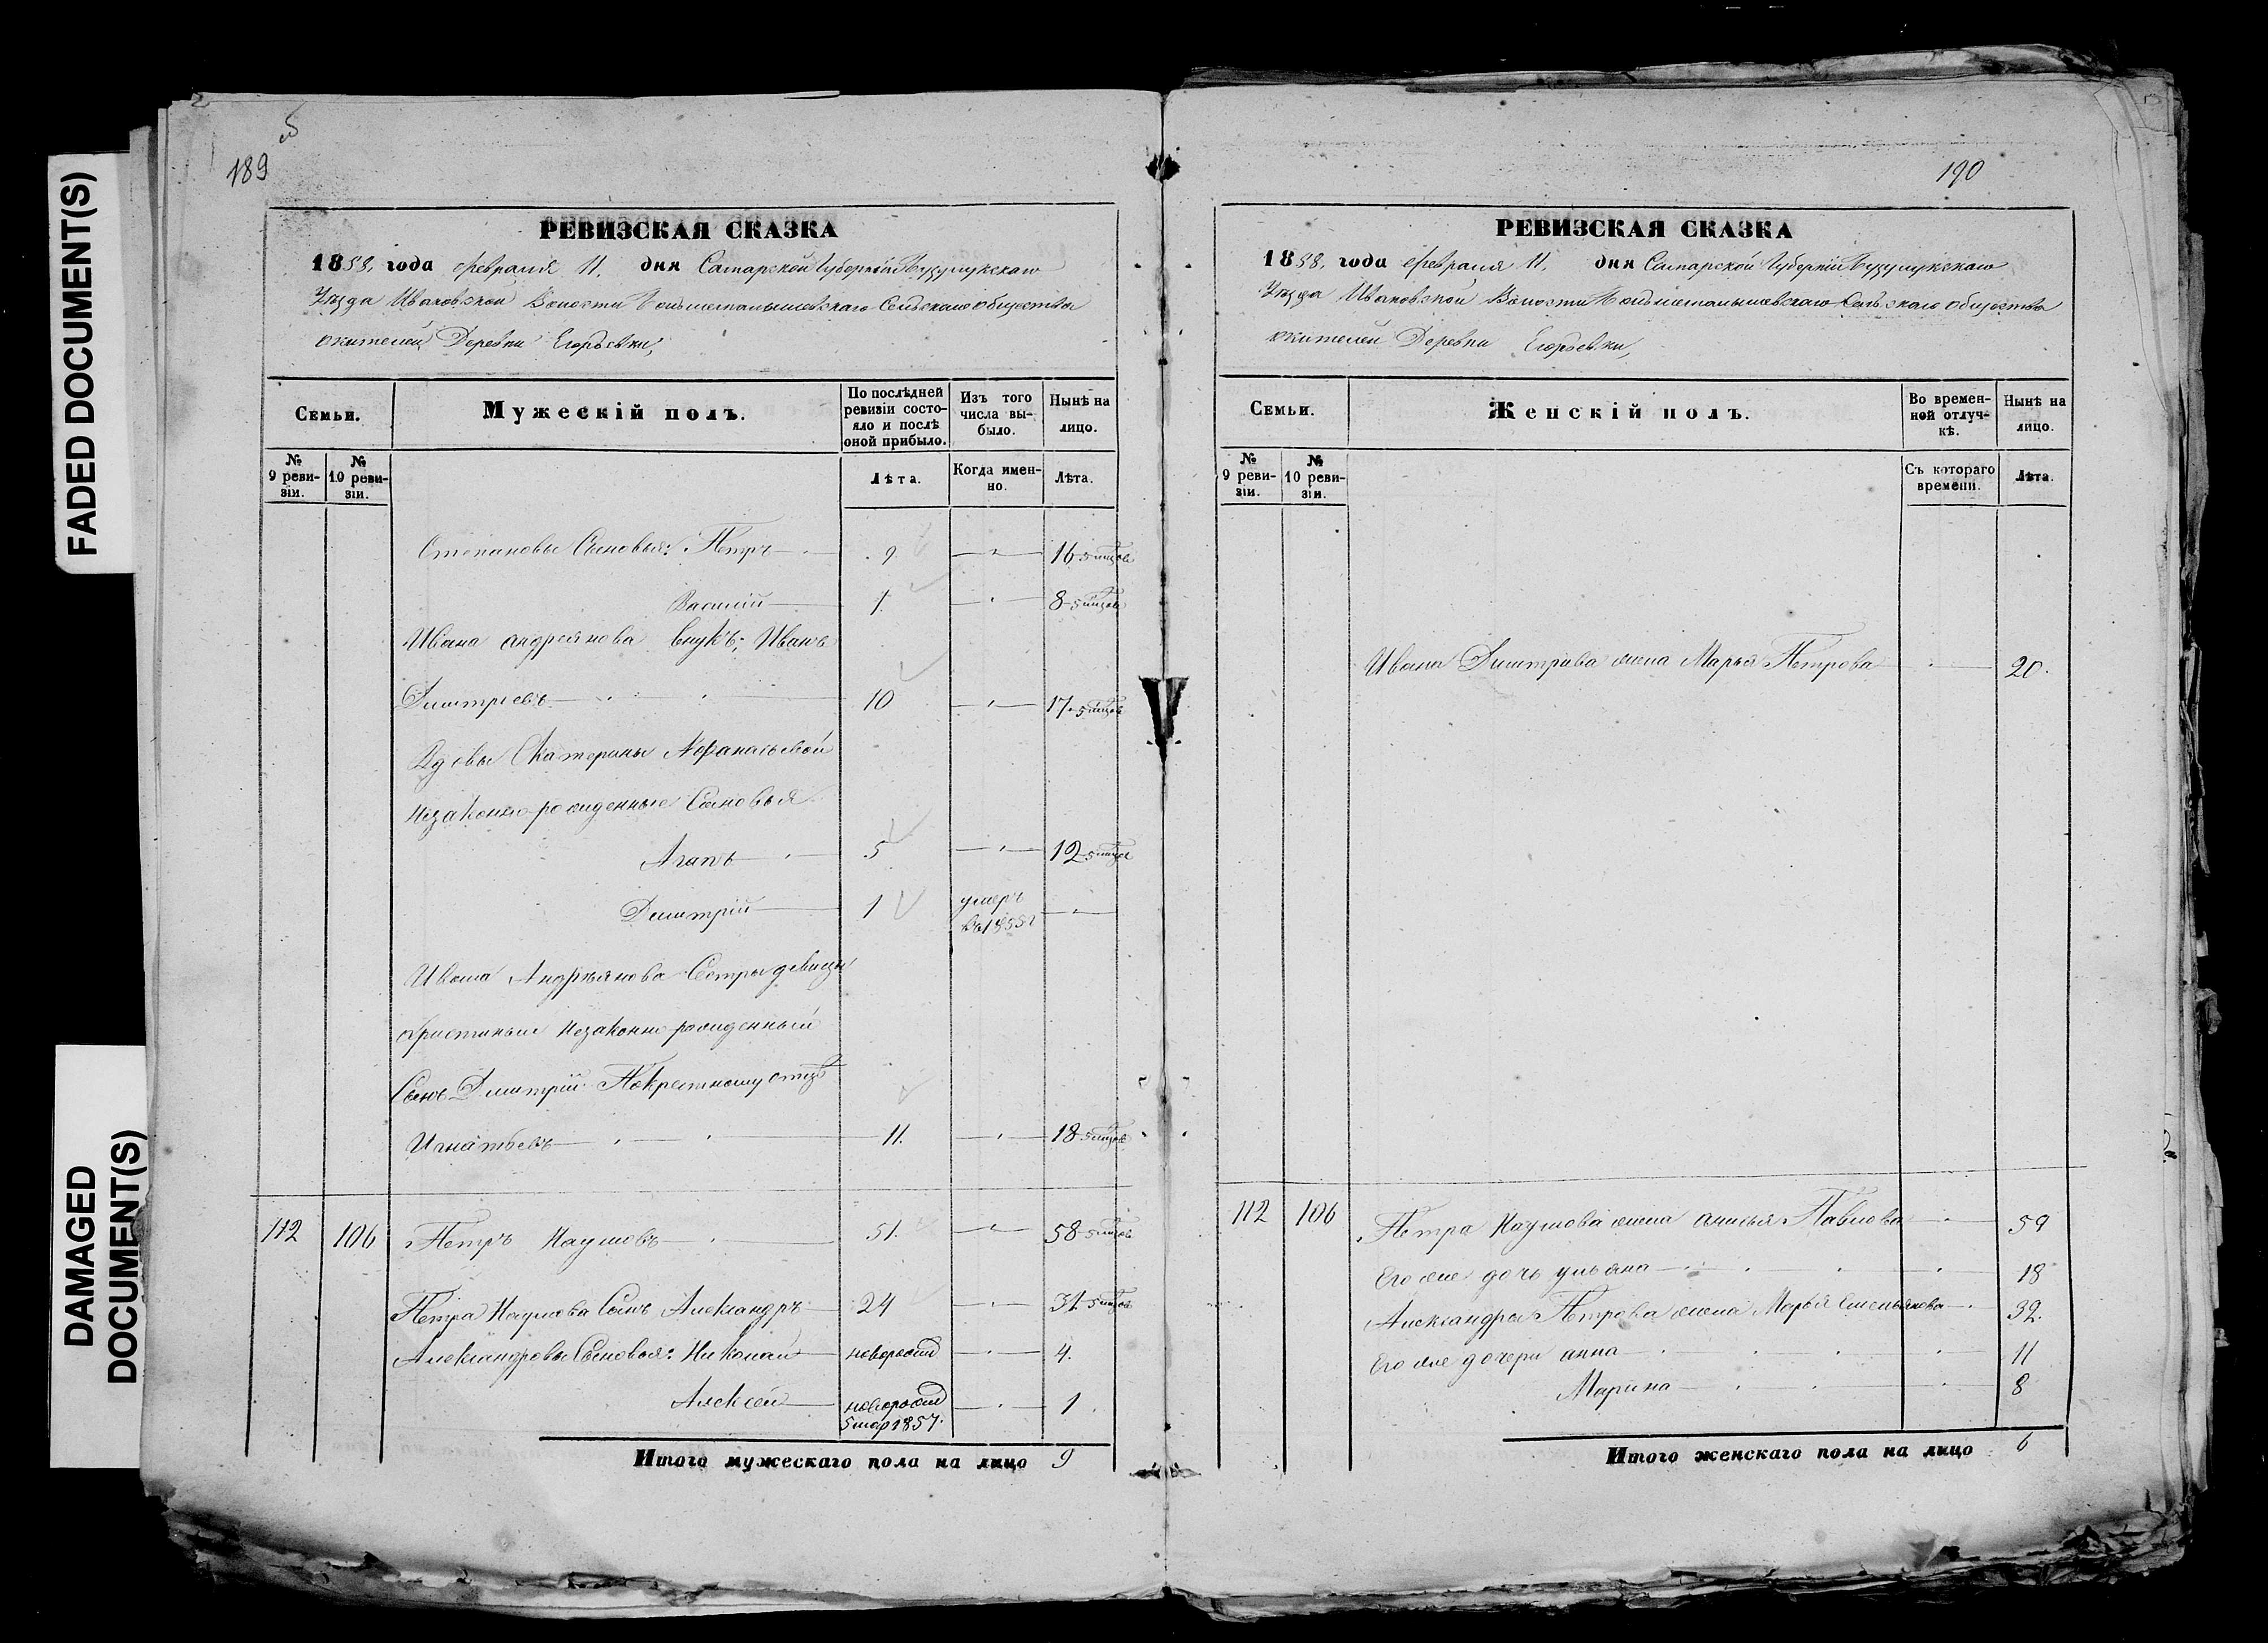 FADED DOCUMENT(S)
DAMAGED
DOCUMENT(S)
189
РЕВИЗСКАЯ СКАЗКА
1858. года февраля 11. дня Самарской Губерніи Бузулукскаго
Уѣзда Ивановской Волости Сельскаго общества
жителей Деревни Егорьевки,
Семьи.
Мужескій полъ.
По послѣдней
ревизіи состо-
яло и послѣ
оной прибыло.
Изъ того
числа вы-
было.
Нынѣ на
лицо.
№
9 реви-
зіи.
№
10 реви-
зіи.
Лѣта.
Когда имен-
но.
Лѣта.
Степановы Сыновья: Петръ 9 16
Василій 1 8
Ивана Андреянова внукъ; Иванъ
Дмитріевъ 10 17
Вдовы Екатерины Афанасьевой
незаконнорожденные Сыновья
Агапъ 5 12
Дмитрій 1 умеръ
въ 1855
Ивана Андреянова Сестры девицы
Христиньи незаконнорожденный
Сынъ Дмитрій По крестному отцу
Игнатьевъ 11. 18
112 106 Петръ Наумовъ 51. 58
Петра Наумова Сынъ Александръ 24 31
Александровы Сыновья: Николай новорожд 4.
Алексей новорожд 1.
5 мар 1857.
Итого мужескаго пола на лицо 9
190
РЕВИЗСКАЯ СКАЗКА
1858. года февраля 11. дня Самарской Губерніи Бузулукскаго
Уѣзда Ивановской Волости Сельскаго общества
жителей Деревни Егорьевки,
Семьи.
Женскій полъ.
Во времен-
ной отлуч-
кѣ.
Нынѣ на
лицо.
№
9 реви-
зіи.
№
10 реви-
зіи.
Съ котораго
времени.
Лѣта.
Ивана Дмитрива жена Марья Петрова 20.
112 106 Петра Наумова жена Анисья Павлова 59
Его же дочь Ульяна 18
Александры Петрова жена Марья Емельянова 32.
Его же дочери Анна 11
Марина 8
Итого женскаго пола на лицо 6